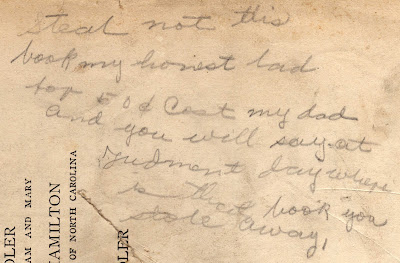 steal not this
book my honest lad
for 50¢ Cost my dad
and you will say at
Judment day where
is that book you
stole away,
DLER
AM AND MARY
HAMILTON
OF NORTH CAROLINA
DLER